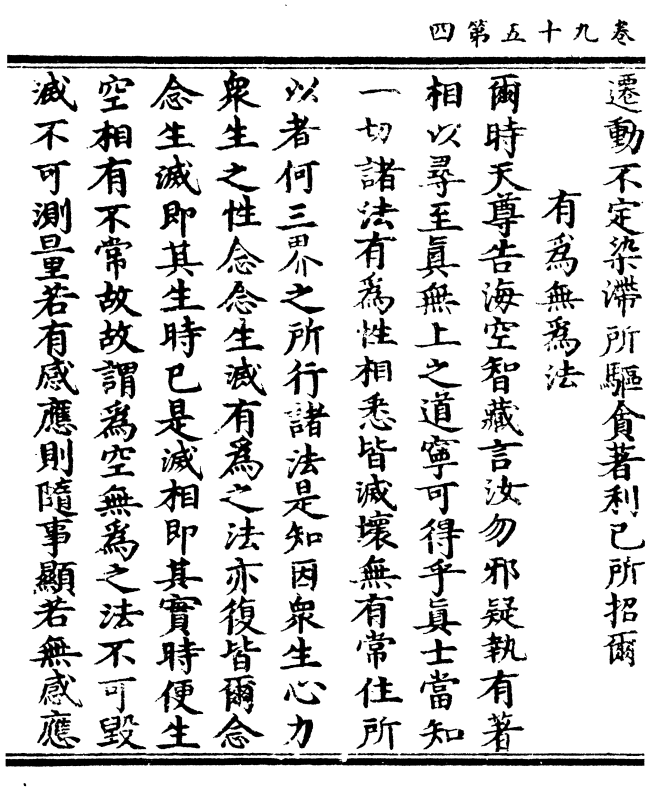 卷九十五第四
遷動不定染滯所驅貪著利己所招爾
有為無為法
爾時天尊告海空智藏言汝勿邪疑執有著
相以尋至真無上之道寧可得乎真士當知
一切諸法有為性相悉皆滅壞無有常住所
以者何三界之所行諸法是知因眾生心力
眾生之性念念生滅有為之法亦復皆爾念
念生滅即其生時已是滅相即其實時便生
空相有不常故故謂為空無為之法不可毀
滅不可測量若有感應則隨事顯若無感應